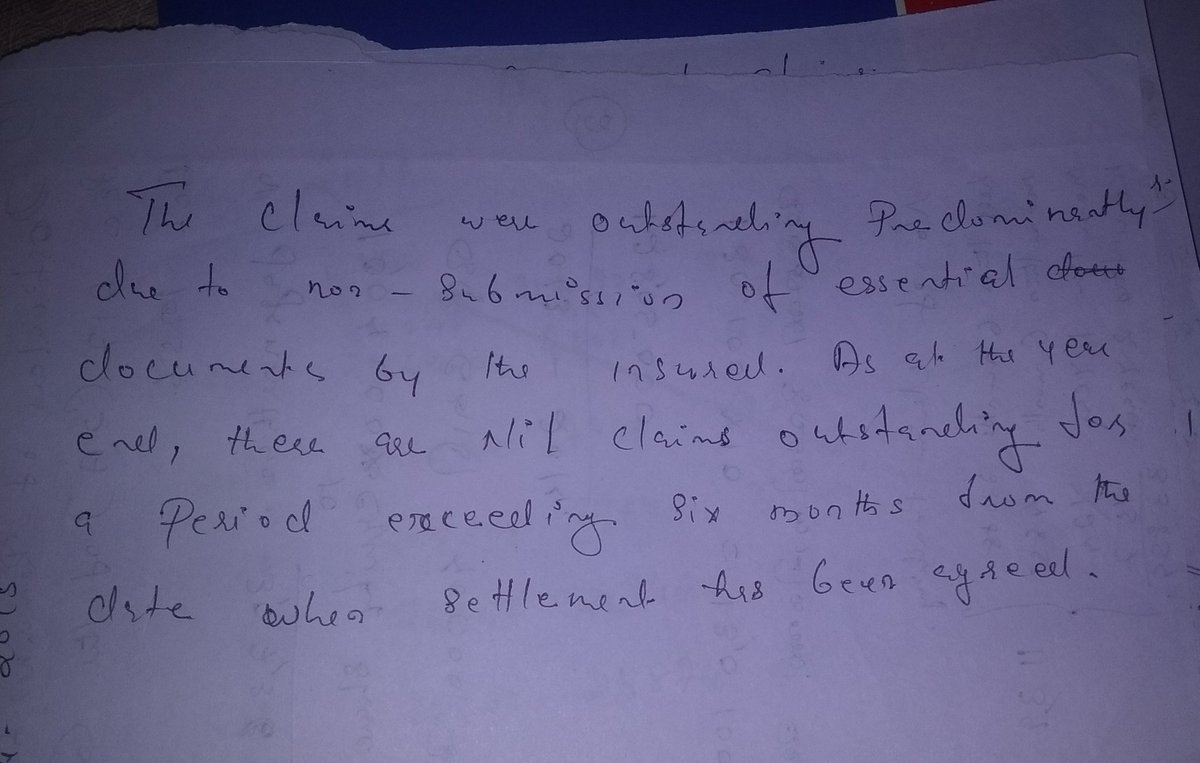 The Claims were outstanding Predominantly
due to non - Submission of essential
documents by the insured. As at the year
end, there are Nil claims outstanding for
a Period exceeding six months from the
date when settlement has been agreed.